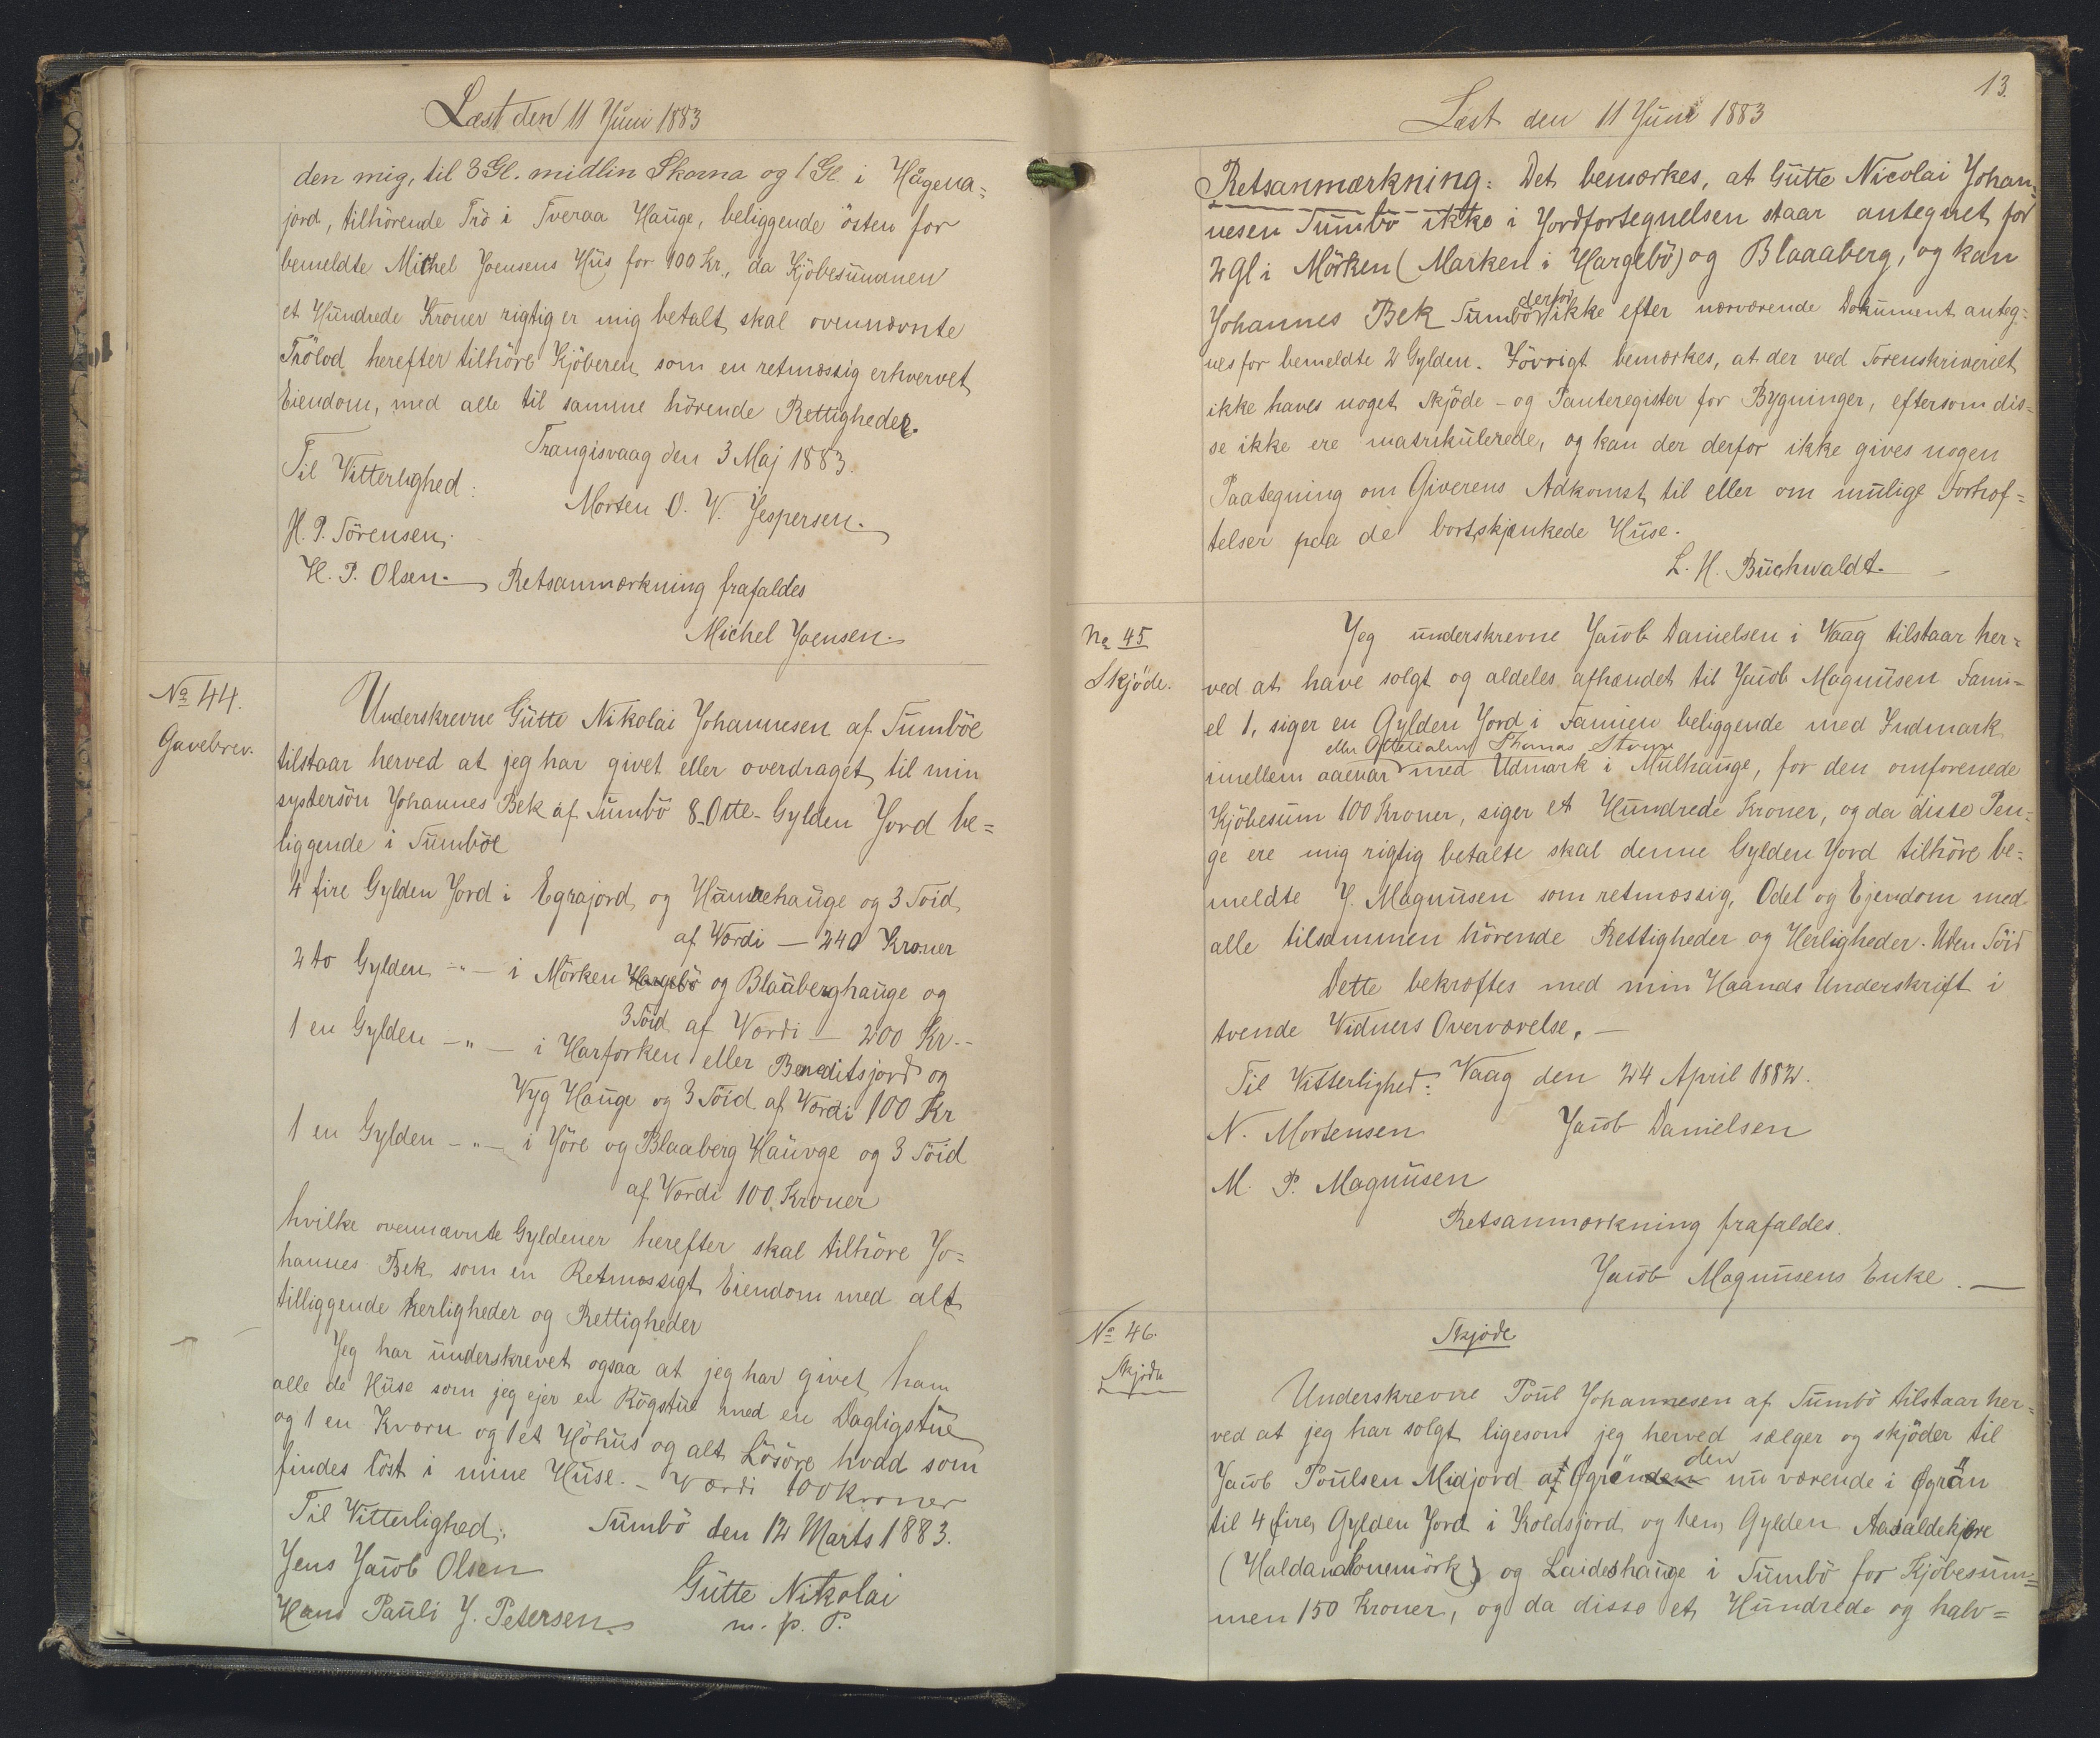 Læst den 11 Juni 1883
den mig, til 3 Gl. midlin Skorna og 1 Gl. i Hågena=
jord, tilhörende Trö i Tveraa Hauge, beliggende östen for
bemeldte Michel Joensens Hus for 100 Kr., da Kjöbesummen
et Hundrede Kroner rigtig er mig betalt skal ovennævnte
Trölod herefter tilhöre Kjöberen som en retmæssig erhvervet
Eiendom, med alle til samme hörende Rettigheder.
Trangisvaag den 3 Maj 1883.
Til Vitterlighed:
Morten O. V. Jespersen.
H. P. Sörensen.
H. P. Olsen.
Retsanmærkning frafaldes
Michel Joensen.
No 44.
Gavebrev.
Underskrevne Gutte Nikolai Johannesen af Sumböe
tilstaar herved at jeg har givet eller overdraget til min
systersön Johannes Bek af Sumbö 8 Otte Gylden Jord be=
liggende i Sumböe
4 fire Gylden Jord i Egrajord og Hamrehauge og 3 Söid
af Værdi — 240 Kroner
2 to Gylden -"- i Mörken Hargebö og Blaaberghauge og
3 Söid af Værdi — 200 Kr.-
1 en Gylden -"- i Harforken eller Beneditsjord og
Vyg Hauge og 3 Söid af Værdi 100 Kr
1 en Gylden -"- i Höre og Blaaberg Hauvge og 3 Söid
af Værdi 100 Kroner
hvilke ovennævnte Gyldener herefter skal tilhöre Jo=
hannes Bek som en Retmæssigt Eiendom med alt
tilliggende herligheder og Rettigheder
Jeg har underskrevet ogsaa at jeg har givet ham
alle de Huse som jeg ejer en Rögstue med en Dagligstue
og 1 en Kværn og 1 et Höhus og alt Lösöre hvad som
findes löst i mine Huse. - Værdi 100 Kroner
Til Vitterlighed:
Sumbö den 12 Marts 1883.
Jens Jacob Olsen
Gutte Nikolai
Hans Pauli J. Petersen.
m. p. P.
13.
Læst den 11 Juni 1883
Retsanmærkning: Det bemærkes, at Gutte Nicolai Johan=
nesen Sumbö ikke i Jordfortegnelsen staar antegnet for
2 Gl i Mörken (Marken i Hargebö) og Blaaaberg, og kan
derfor
Johannes Bek Sumbö ikke efter nærværende Dokument anteg=
nes for bemeldte 2 Gylden. Iövrigt bemærkes, at der ved Sorenskriveriet
ikke haves noget Skjöde- og Panteregister for Bygninger, eftersom dis=
se ikke ere matrikulerede, og kan der derfor ikke gives nogen
Paategning om Giverens Adkomst til eller om mulige Forhæf=
telser paa de bortskjænkede Huse.
L. H. Buchwaldt.
No 45
Skjöde.
Jeg underskrevne Jacob Danielsen i Vaag tilstaar her=
ved at have solgt og aldeles afhændet til Jacob Magnusen Fami=
el 1, siger en Gylden Jord i Famien beliggende med Indmark
eller Thomas
imellem aaevar med Udmark i Mulhauge, for den omforenede
Kjöbesum 100 Kroner, siger et Hundrede Kroner, og da disse Pen=
ge ere mig rigtig betalte skal denne Gylden Jord tilhöre be=
meldte J. Magnusen som retmæssig, Odel og Ejendom med
alle tilsammen hörende Rettigheder og Herligheder. Uden Söid
Dette bekræftes med min Haands Underskrift i
tvende Vidners Overværelse. —
Til Vitterlighed:
Vaag den 24 April 1882.
N. Mortensen
Jacob Danielsen
M. P. Magnusen
Retsanmærkning frafaldes.
Jacob Magnusens Enke. —
No 46.
Skjöde
Skjöde
Underskrevne Poul Johannesen af Sumbö tilstaar her=
ved at jeg har solgt ligesom jeg herved sælger og skjöder til
den
Jacob Poulsen Midjord af Ögrenden nu værende i Ögrän
til 4 fire Gylden Jord i Koldsjord og 1 en Gylden Aasaldekjære
(Haldanakonemörk) og Laideshauge i Sumbö for Kjöbesum=
men 150 Kroner, og da disse et Hundrede og halv=